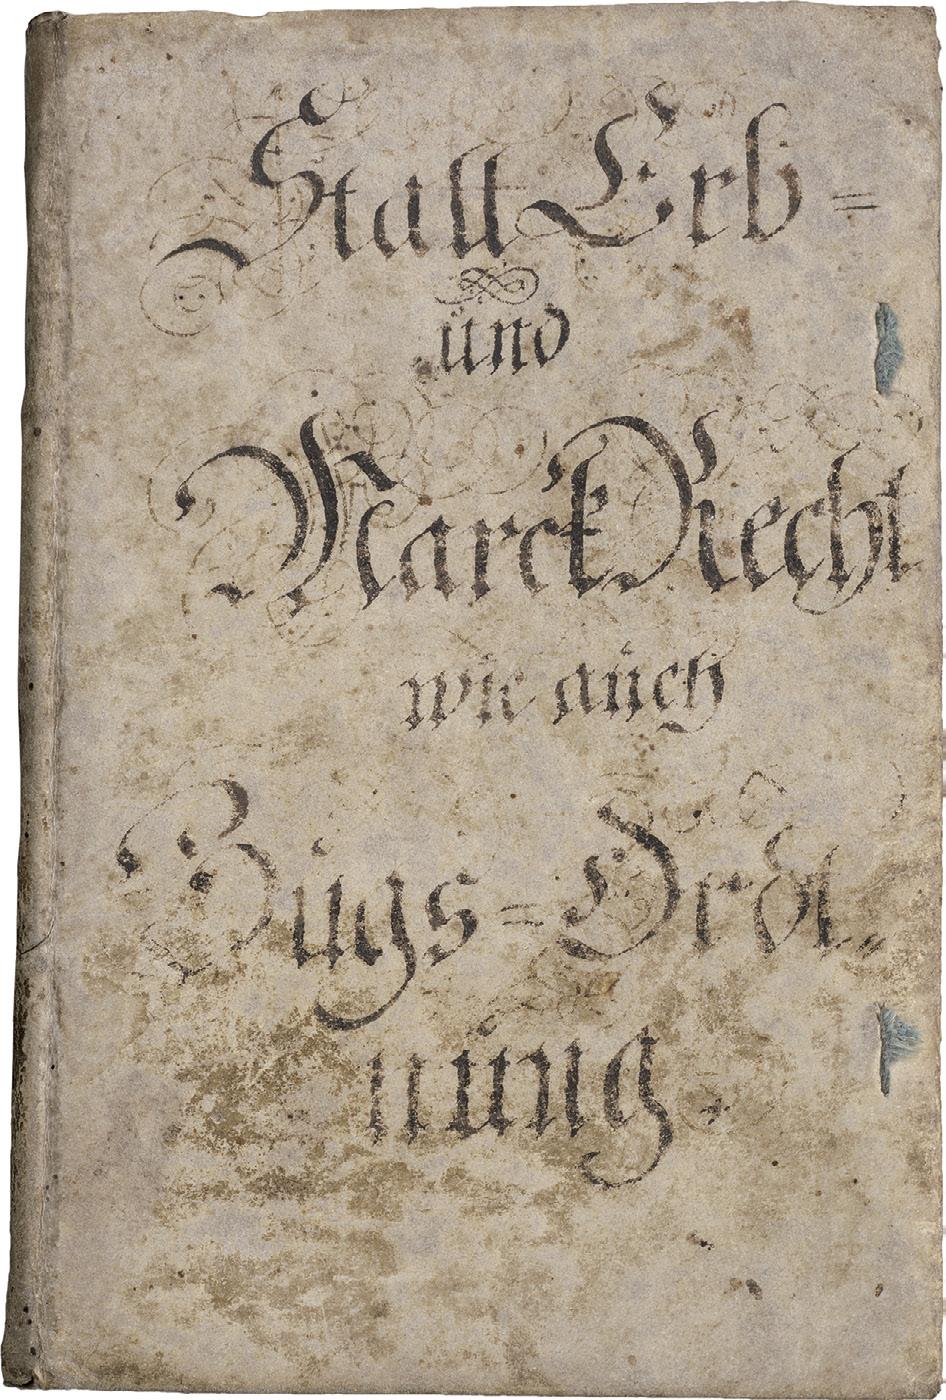 Stall Erb=
und
Marck Recht
wie auch
Bugs=Ordt„
nung.